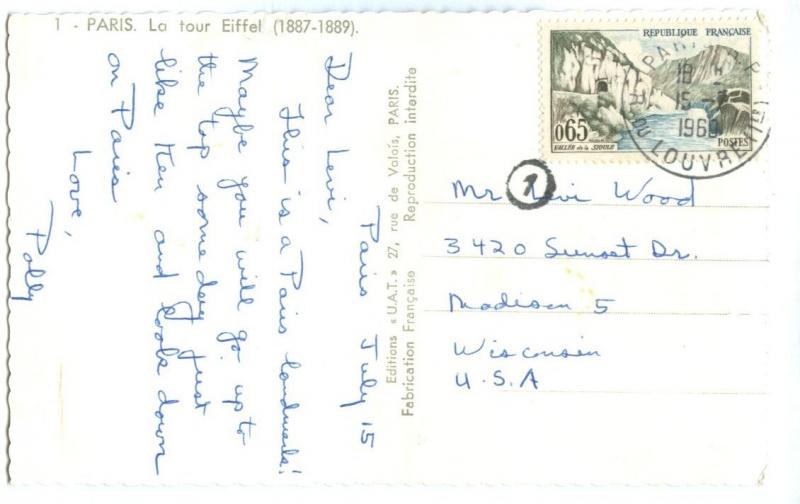 1 - PARIS. La tour Eiffel (1887-1889).
Paris July 15
Dear Levi,
This is a Paris landmark!
Maybe you will go up to
the top some day just
like Ken and look down
on Paris
Love,
Polly
Editions « U.A.T. » 27, rue de Valois, PARIS.
Fabrication Française Reproduction interdite
REPUBLIQUE FRANÇAISE
0,65
VALLÉE de la SIOULE
POSTES
PARIS
18
15
1960
R. DU LOUVRE
1
Mr Levi Wood
3420 Sunset Dr.
Madison 5
Wisconsin
U.S.A